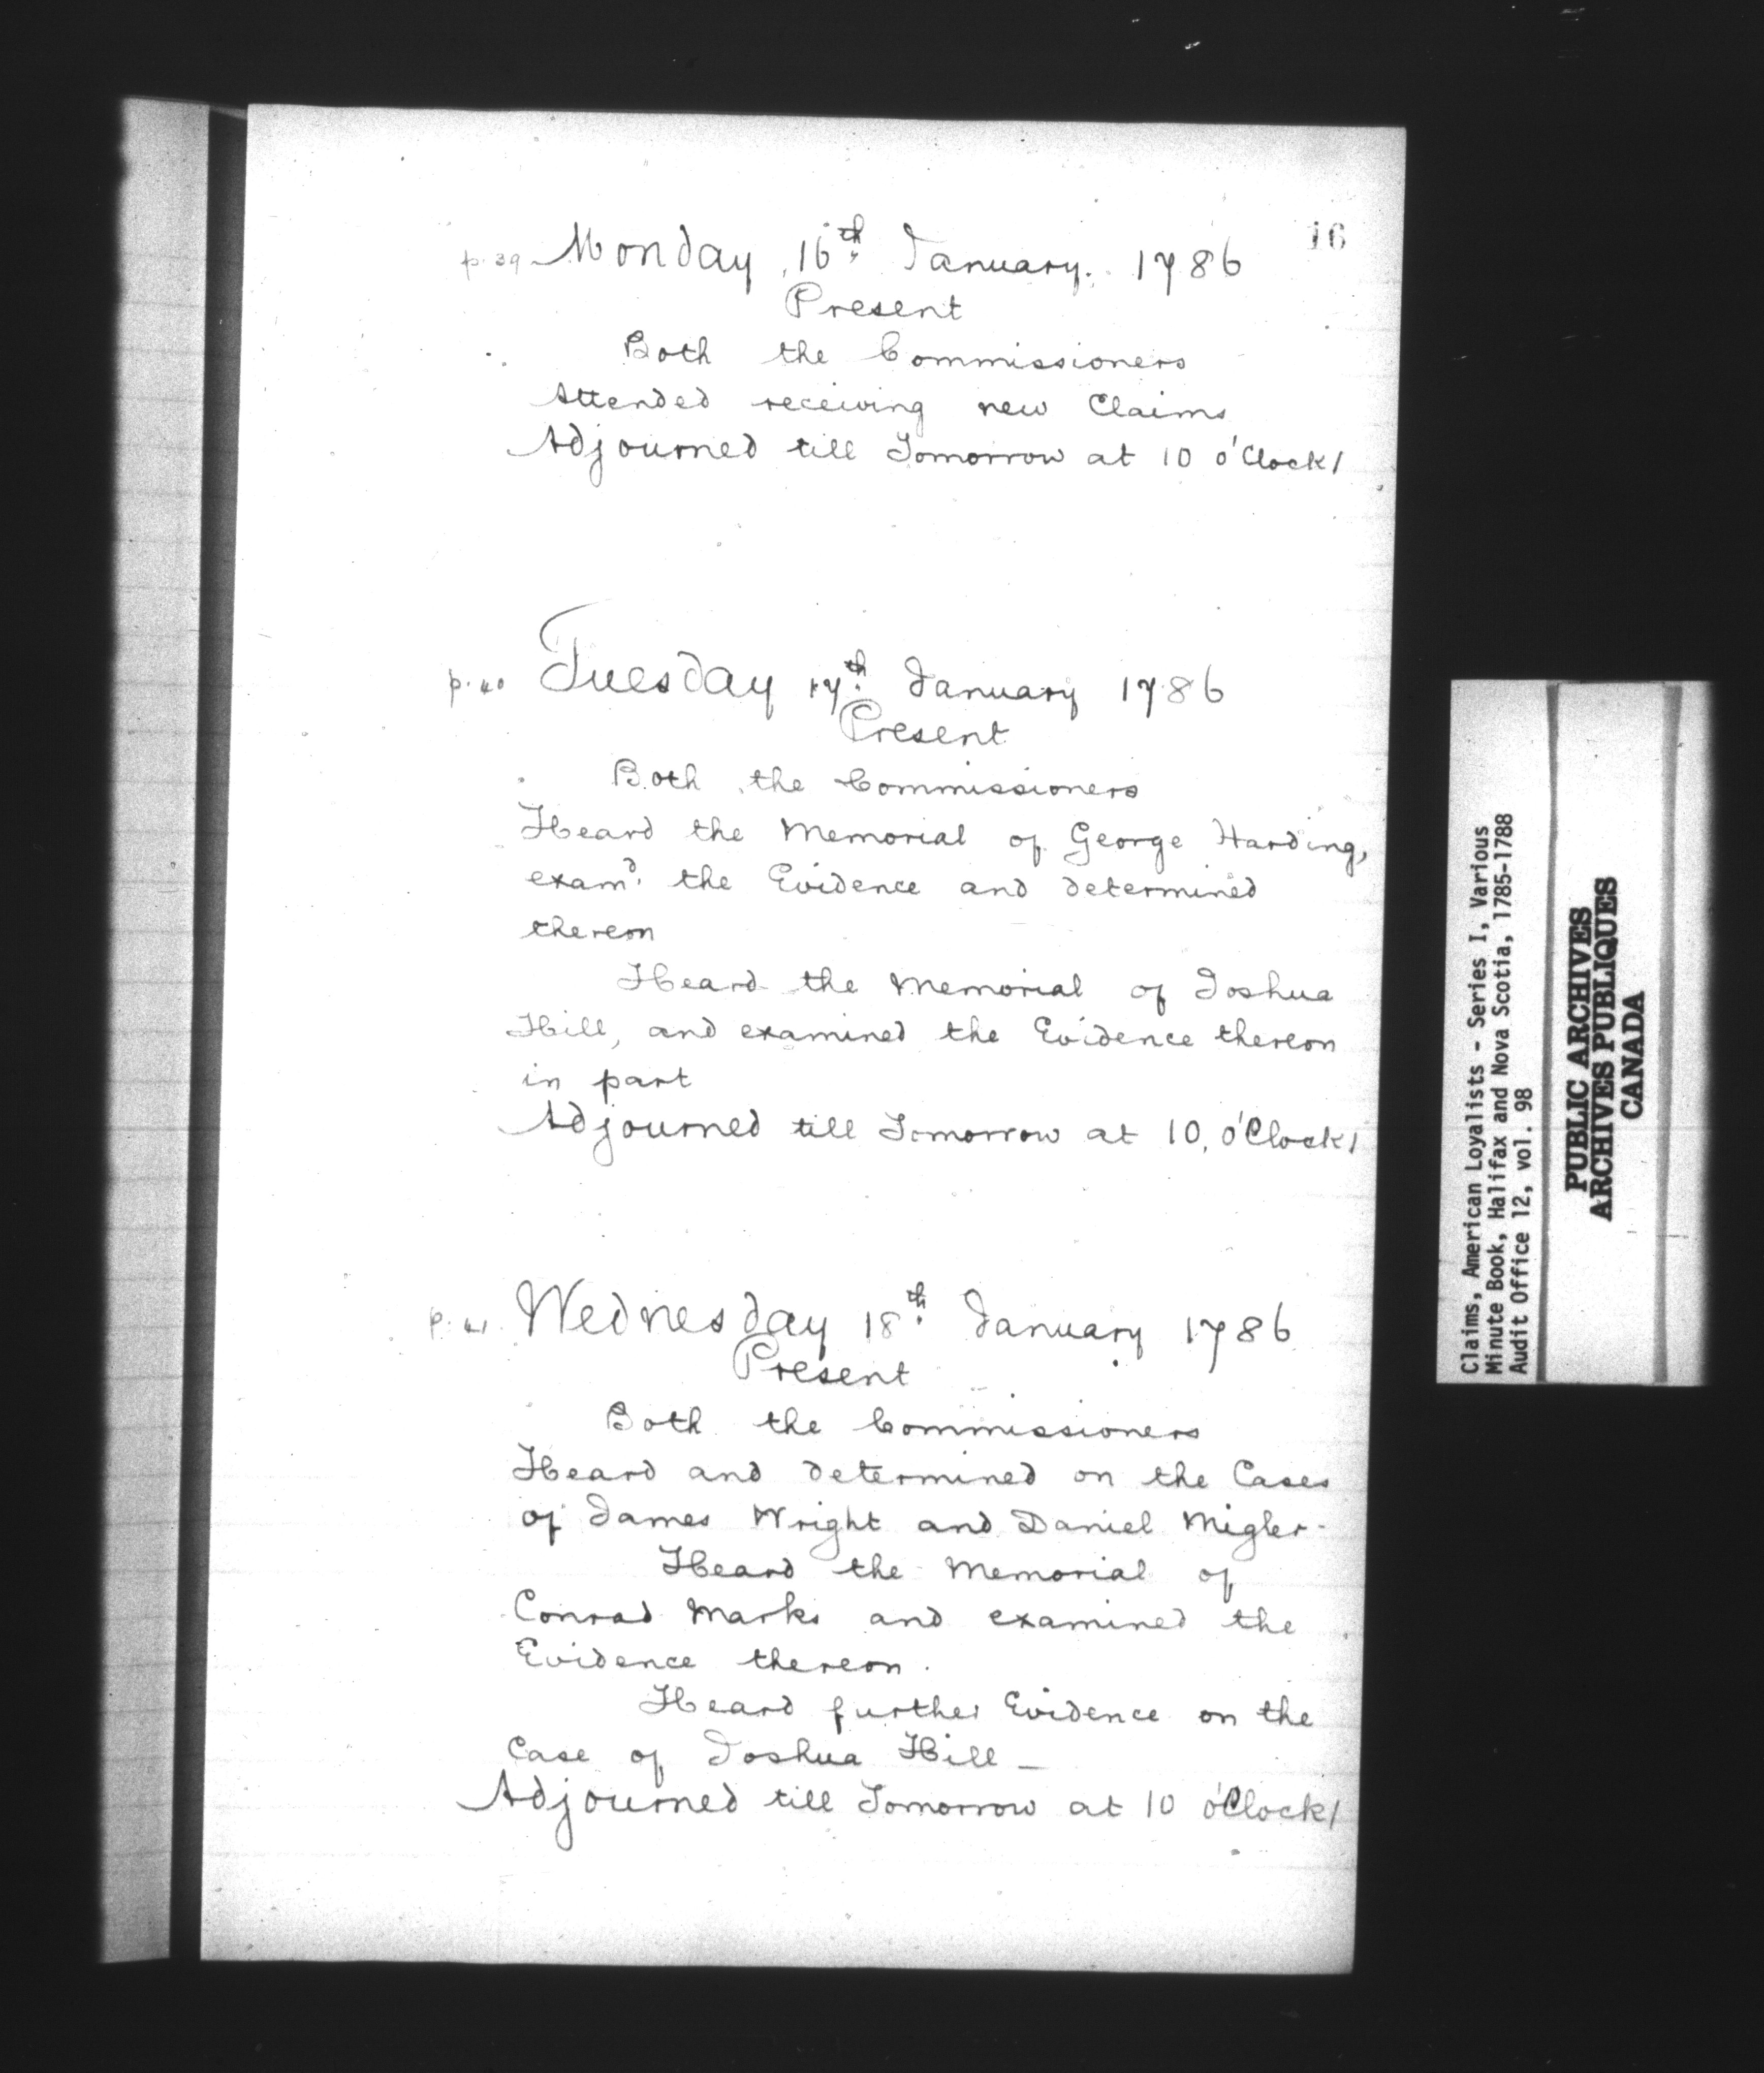 16
p. 39 Monday 16th January. 1786
Present
Both the Commissioners
Attended receiving new Claims
Adjourned till Tomorrow at 10 o'Clock/
p. 40 Tuesday 17th January 1786
Present
Both the Commissioners
Heard the Memorial of George Harding,
examd. the Evidence and determined
thereon
Heard the Memorial of Joshua
Hill, and examined the Evidence thereon
in part
Adjourned till Tomorrow at 10, o'Clock/
p. 41 Wednesday 18th January 1786
Present
Both the Commissioners
Heard and determined on the Cases
of James Wright and Daniel Migler-
Heard the Memorial of
Conrad Marks and examined the
Evidence thereon.
Heard further Evidence on the
Case of Joshua Hill _
Adjourned till Tomorrow at 10 o'Clock/
Claims, American Loyalists - Series I, Various
Minute Book, Halifax and Nova Scotia, 1785-1788
Audit Office 12, vol. 98
PUBLIC ARCHIVES
ARCHIVES PUBLIQUES
CANADA